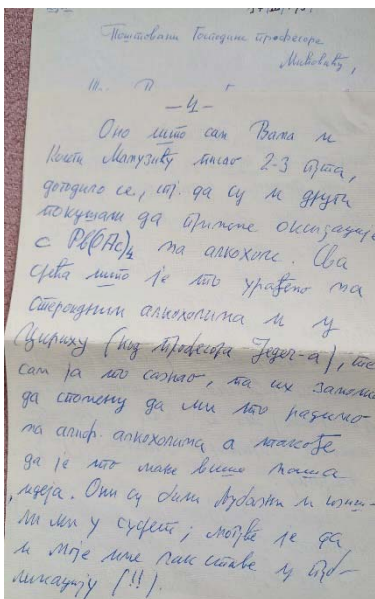 Поштовани Господине професоре
Мићовићу,
— 4 —
Оно што сам Вама и
Кости Мамузићу писао 2-3 пута,
догодило се, тј. да су и други
покушали да примене оксидације
с Pb(OAc)4 на алкохоле. Сва
срећа што је то урађено на
стероидним алкохолима и у
Цириху (код професора Jeger-а), те
сам ја то сазнао, па их замолио
да спомену да ми то радимо
на алиф. алкохолима а такође
да је то мање више наша
идеја. Они су били љубазни и изашли
ли ми у сусрет; могуће је да
и моје име чак ставе у пуб-
ликацију (!!).